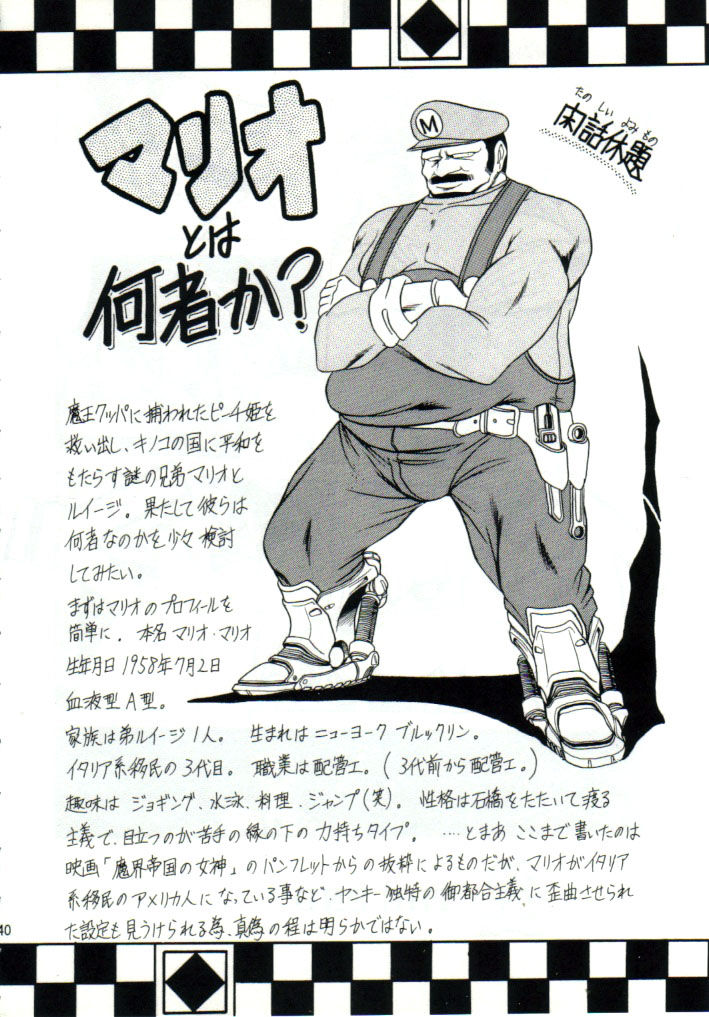 マリオ
とは
何者か?
たの しい よみ もの
閑話休題
M
魔王クッパに捕われたピーチ姫を
救い出し、キノコの国に平和を
もたらす謎の兄弟マリオと
ルイージ。果たして彼らは
何者なのかを少々検討
してみたい。
まずはマリオのプロフィールを
簡単に。本名 マリオ・マリオ
生年月日 1958年7月2日
血液型 A型。
家族は弟ルイージ1人。 生まれは ニューヨーク ブルックリン。
イタリア系移民の3代目。 職業は配管工。(3代前から配管工。)
趣味は ジョギング、水泳、料理・ジャンプ(笑)。 性格は石橋をたたいて寝る
主義で、目立つのが苦手の縁の下の力持ちタイプ。 ‥‥とまあ ここまで書いたのは
映画「魔界帝国の女神」のパンフレットからの抜粋によるものだが、マリオがイタリア
系移民のアメリカ人になっている事など、ヤンキー独特の御都合主義に歪曲させられ
た設定も見うけられる為、真偽の程は明らかではない。
40